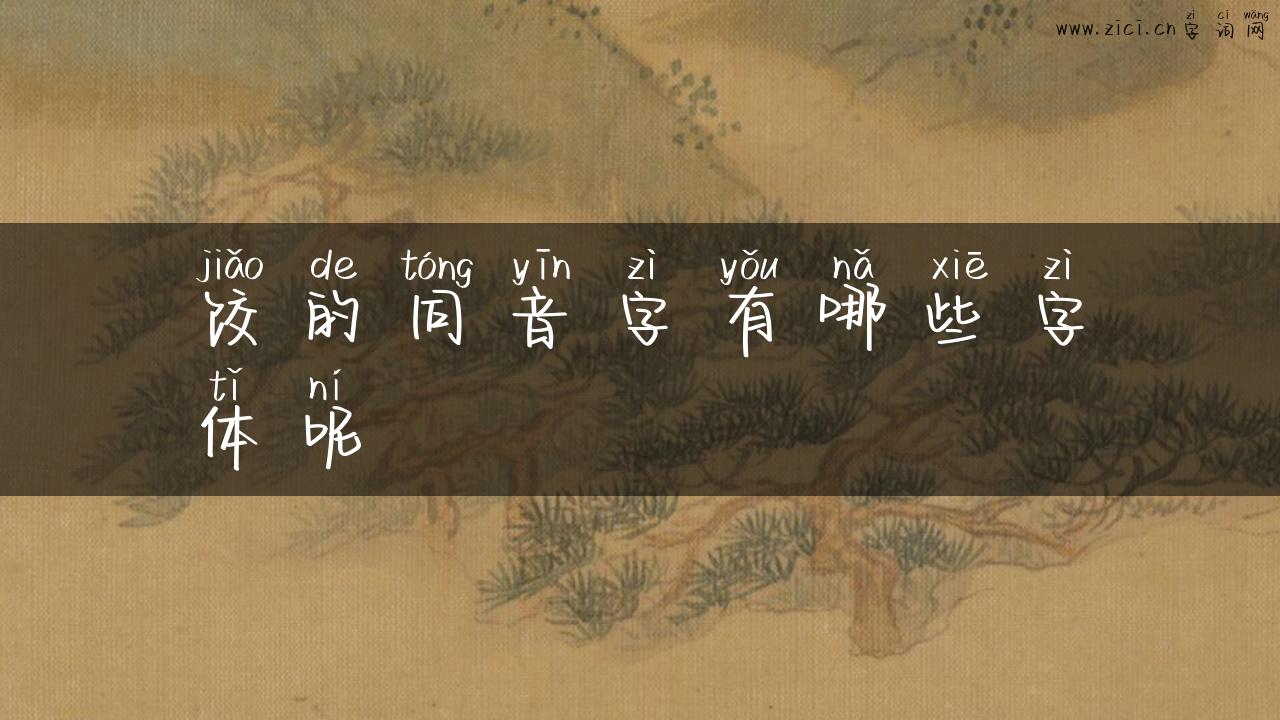 zì cí wǎng
www.zici.cn 字词网
jiǎo de tóng yīn zì yǒu nǎ xiē zì
饺的同音字有哪些字
tǐ ní
体呢